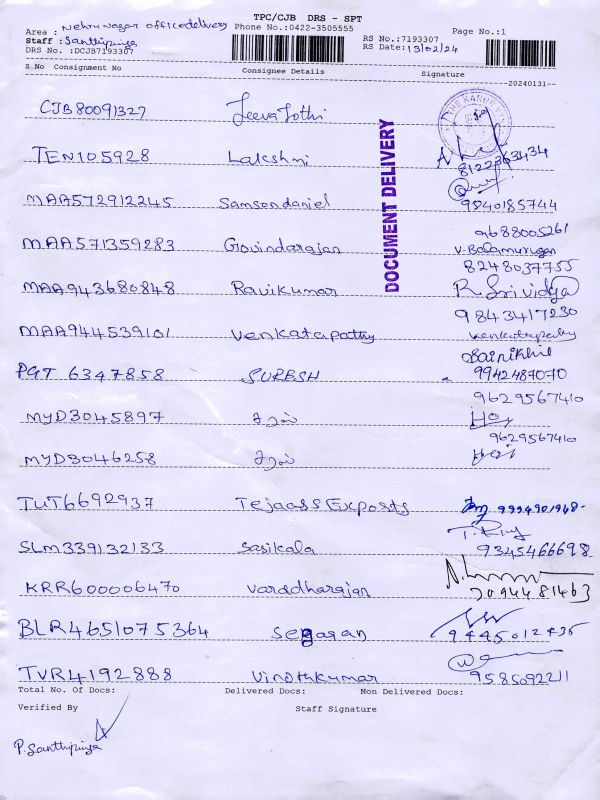 TPC/CJB DRS - SPT
Area : Nehru nagar office delivery Phone No.:0422-3505555 Page No.:1
Staff : Santhipriya RS No.:7193307
DRS No. :DCJB7193307 RS Date:13/02/24
S No Consignment No Consignee Details Signature
20240131
CJB80091327 Jeeva Jothi
TEN105928 Lakshmi 8122363434
MAA572912245 Samsondaniel 9840185744
9688005261
MAA571359283 Govindarajan V. Balamurugan
8248037755
MAA943680848 Ravikumar R. Srividya
9843417230
MAA944539101 Venkatapathy Venkatapathy
Sainikhil
PGT 6347858 SURESH 9942487070
9629567410
MYD3045897
9629567410
MYD3046258
TUT6692937 Tejaass Exports 9994901968
SLM339132133 Sasikala 9345466698
KRR600006470 Varddharajan 7094481463
BLR4651075364 Segaran 9445012435
TVR4192888 Vinothkumar 9585092211
DOCUMENT DELIVERY
Total No. Of Docs: Delivered Docs: Non Delivered Docs:
Verified By Staff Signature
P. Santhipriya